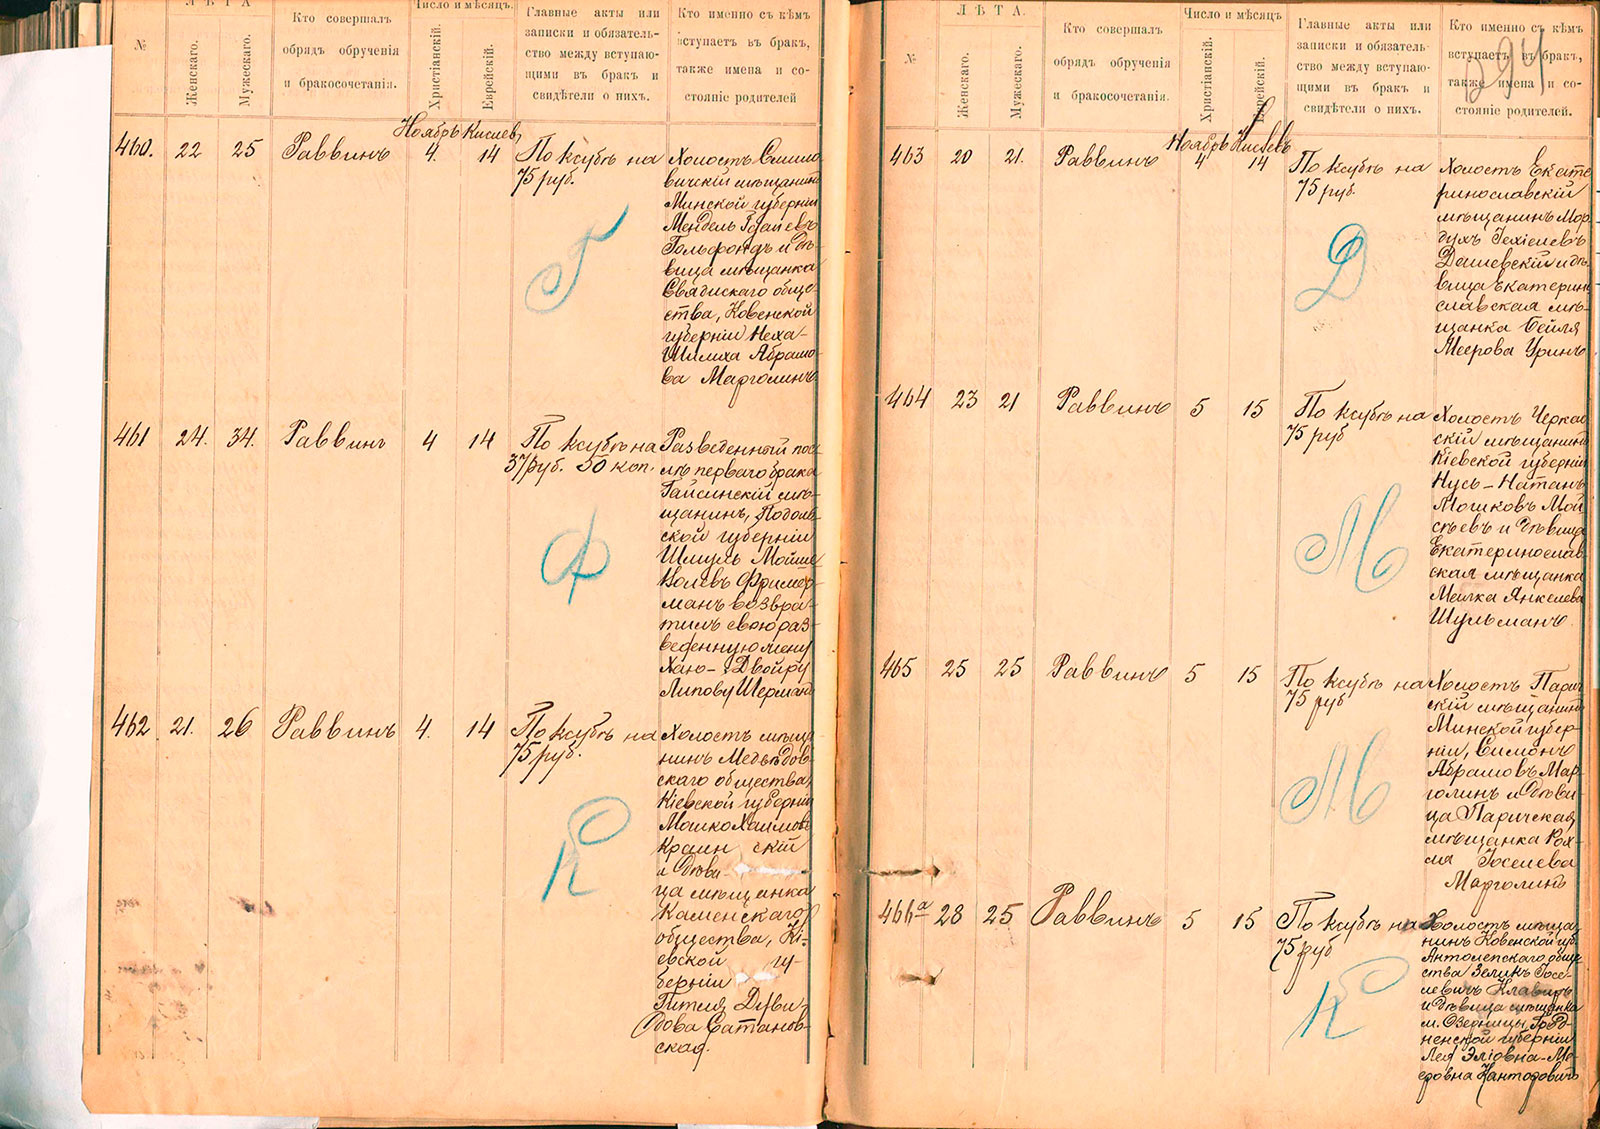 №
ЛѢТА
Женскаго.
Мужескаго.
Кто совершалъ
обрядъ обрученія
и бракосочетанія.
Число и мѣсяцъ.
Христіанскій.
Еврейскій.
Главные акты или
записки и обязатель-
ство между вступаю-
щими въ бракъ и
свидѣтели о нихъ.
Кто именно съ кѣмъ
вступаетъ въ бракъ,
также имена и со-
стояніе родителей
Ноябрь Кислев
460.
22
25
Раввинъ
4.
14
По ксубѣ на
75 руб.
Холостъ Смило
вичскій мѣщанинъ
Минской губерніи
Мендель Гдалевъ
Гольфондъ и дѣ-
вица мѣщанка
Свядискаго обще-
ства, Ковенской
губерніи Неха-
Шлиха Абрамо-
ва Марголинъ
Г
461
24.
34.
Раввинъ
4
14
По ксубѣ на
37 руб. 50 коп.
Разведенный пос-
лѣ перваго брака
Гайсинскій мѣ-
щанинъ, Подоль-
ской губерніи
Шмуль Мойше
Волевъ Фример-
манъ возвра-
тилъ свою раз-
веденную жену
Хаю-Двойру
Липову Шерман
Ф
462
21.
26
Раввинъ
4.
14
По ксубѣ на
75 руб.
Холостъ мѣща
нинъ Медвѣдов-
скаго общества,
Кіевской губерніи
Мошко Хаимовъ
Краинскій
и дѣви-
ца мѣщанка
Каменскаго
общества, Кі-
евской гу-
берніи
Гитля Дуви-
дова Сатанов-
ская.
К
№
ЛѢТА.
Женскаго.
Мужескаго.
Кто совершалъ
обрядъ обрученія
и бракосочетанія.
Число и мѣсяцъ
Христіанскій.
Еврейскій.
Главные акты или
записки и обязатель-
ство между вступаю-
щими въ бракъ и
свидѣтели о нихъ.
Кто именно съ кѣмъ
вступаетъ въ бракъ,
также имена и со-
стояніе родителей.
Ноябрь Кислевъ
463
20
21.
Раввинъ
4
14
По ксубѣ на
75 руб.
Холостъ Екате
ринославскій
мѣщанинъ Мор
духъ Іехіелевъ
Дашевскій и дѣ-
вица Екатерин
славская мѣ-
щанка Бейля
Меерова Уринъ
Д
464
23
21
Раввинъ
5
15
По ксубѣ на
75 руб
Холостъ Черкас
скій мѣщанинъ
Кіевской губерніи
Нусь-Натанъ
Мошковъ Мой
сѣевъ и дѣвица
Екатеринослав-
ская мѣщанка
Малка Янкелева
Шульманъ.
М
465
25
25
Раввинъ
5
15
По ксубѣ на
75 руб
Холостъ Парич
скій мѣщанинъ
Минской губер-
ніи, Симонъ
Абрамовъ Мар-
голинъ и дѣви-
ца Паричская
мѣщанка Рох-
ля Іоселева
Марголинъ
М
466а
28
25
Раввинъ
5
15
По ксубѣ на
75 руб
Холостъ мѣща-
нинъ Ковенской губ.
Антолепскаго обще
ства Зеликъ Іосе-
левичъ Клавиръ
и дѣвица мѣщанка
м. Озерницы, Грод-
ненской губерніи
Лея Эліовна-Ме-
еровна Канторовичъ
К